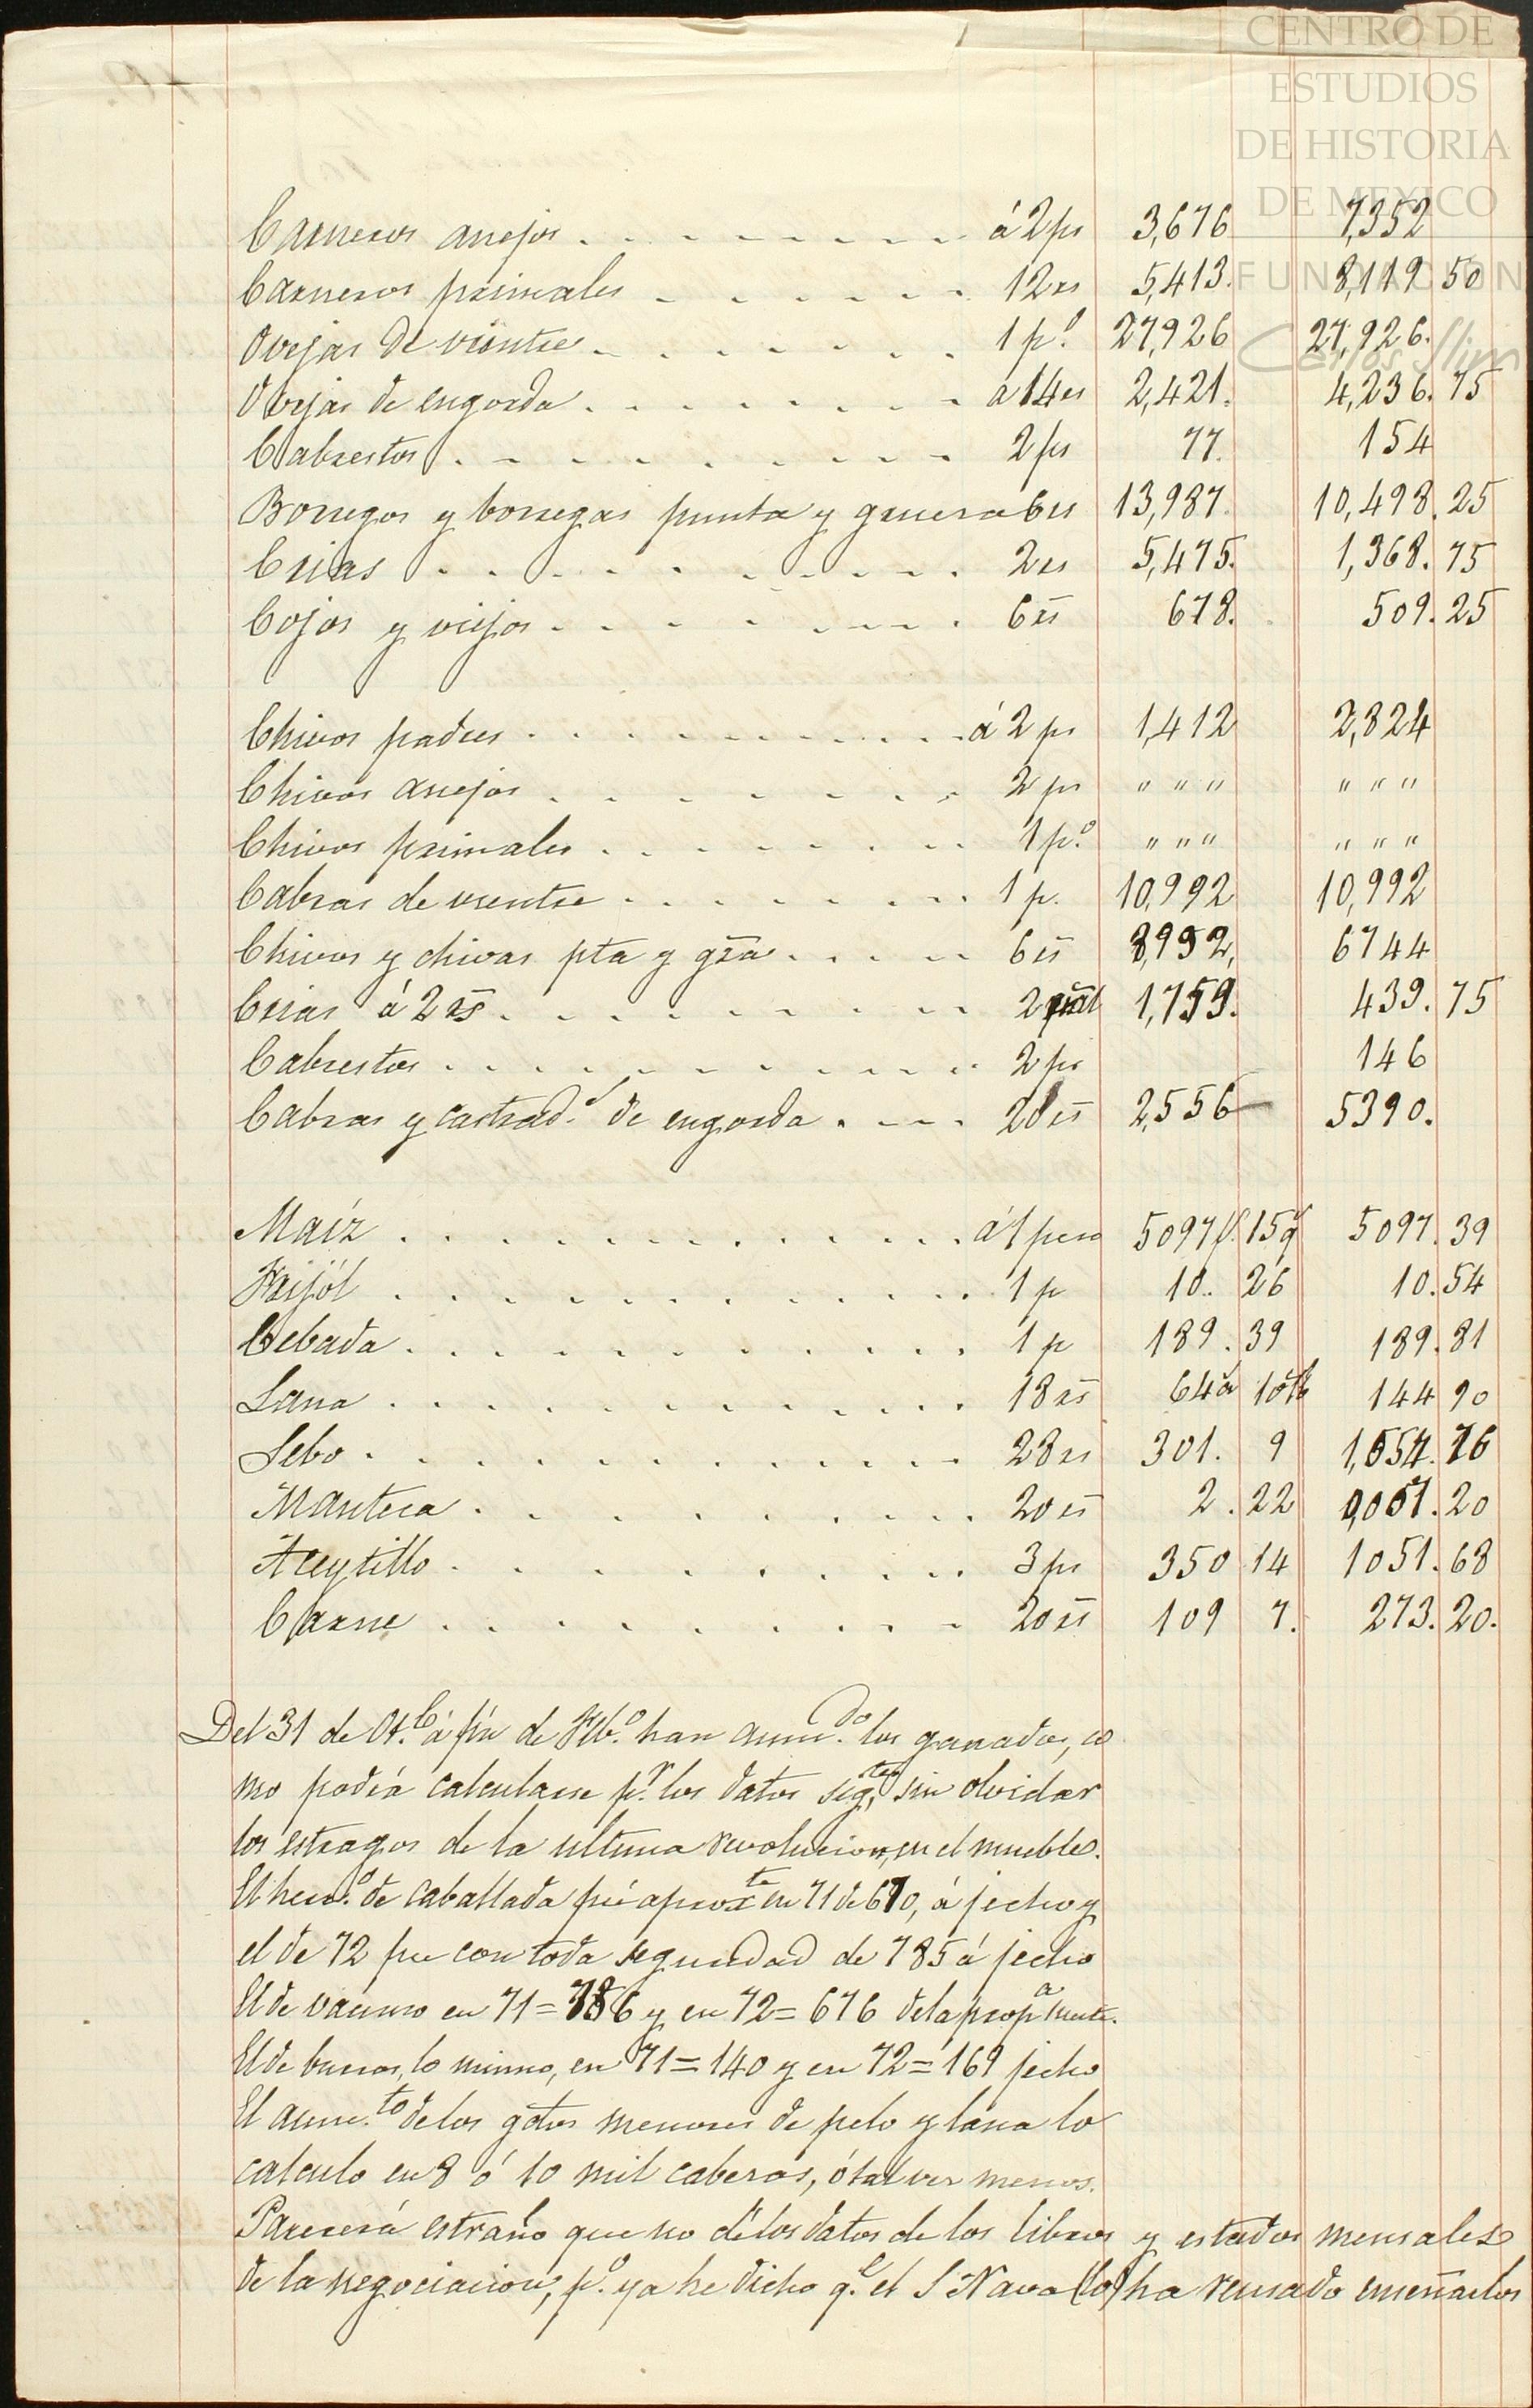 CENTRO DE
ESTUDIOS
DE HISTORIA
DE MEXICO
FUNDACION
Carlos Slim
Carneros anejos . . . . . . . . á 2 ps 3,676 7,352
Carneros primales . . . . . . . 12 rs 5,413. 8,119 50
Ovejas de vientre . . . . . . . 1 p.º 27,926 27,926.
Ovejas de engorda . . . . . . . . a 14 rs 2,421. 4,236. 75
Cabrestos . . . . . . . . . 2 ps 77. 154
Borregos y borregas punta y gruesa 6 rs 13,987. 10,498. 25
Crias . . . . . . . . . 2 rs 5,475. 1,368. 75
Cojos y viejos . . . . . . . . 6 rs 678. 509. 25
Chivos padres . . . . . . . . . . á 2 ps 1,412 2,824
Chivos anejos . . . . . . . . 2 ps " " " " " "
Chivos primales . . . . . . . . 1 p.º " " " " " "
Cabras de vientre . . . . . . . 1 p. 10,992 10,992
Chivos y chivas pta y grã . . . . . 6 rs 8,992, 6744
Crias á 2 rs . . . . . . . . . 2 1,759. 439. 75
Cabrestos . . . . . . . . . . . 2 ps 146
Cabras y castrad.s de engorda . . . . 20 rs 2,556 5390.
Maíz . . . . . . . . . . . . á 1 peso 5097 f. 15 q 5097. 39
Frijól . . . . . . . . . . . . 1 p 10. 26 10. 54
Cebada . . . . . . . . . . . . 1 p 189. 39 189. 81
Lana . . . . . . . . . . . . 18 rs 64 a 10 lb 144 90
Sebo . . . . . . . . . . . . 28 rs 301. 9 1,054. 76
Manteca . . . . . . . . . . 20 rs 2. 22 20
Aceytillo . . . . . . . . . . 3 ps 350 14 1051. 68
Carne . . . . . . . . . . 20 rs 109 7. 273. 20.
Del 31 de Ot.e á fin de Feb.o han aum.do los ganados, co
mo podrá calcularse p.r los datos sig.tes sin olvidar
los estragos de la ultima revolucion, en el mueble.
El herr.o de caballada fué aprox.te en 71 de 670, á fecho y
el de 72 fue con toda seguridad de 785 á fecho
El de vacuno en 71 = 786 y en 72 = 676 de la prop.a
El de burros, lo mismo, en 71 = 140 y en 72 = 169 fecho
El aum.to de los gdos menores de pelo y lana lo
calculo en 8 ó 10 mil cabezas, ó tal vez menos.
Parecerá estraño que no dé los datos de los libros y estados mensales
de la negociacion, p.o ya he dicho q.e el S Nava (lo) ha reusado enseñarlos